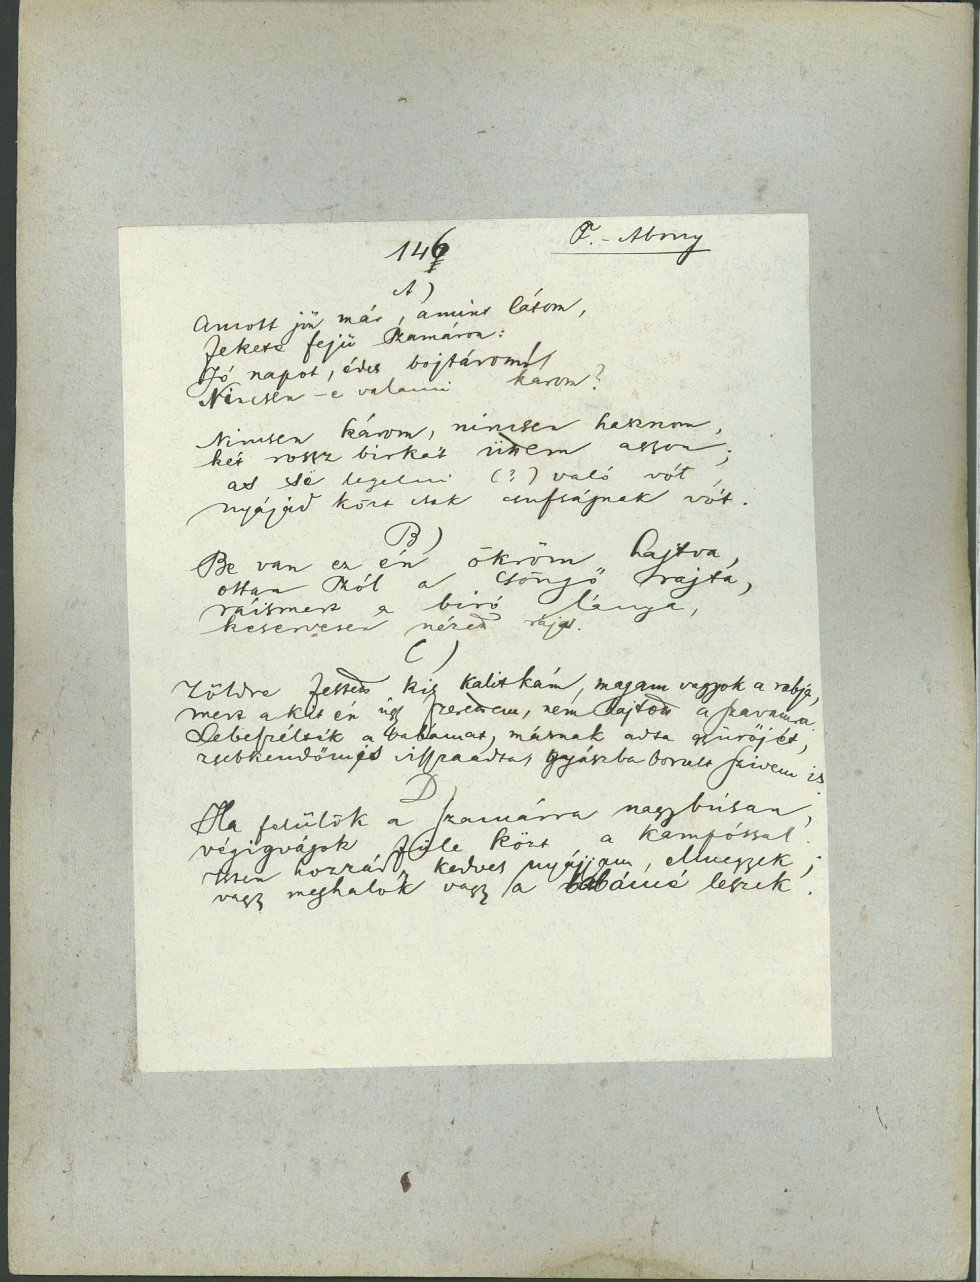 146
F.-Abony
A)
Amott jön már, amint látom,
fekete fejü szamáron:
Jó napot, édes bojtárom!
Nincsen-e valami károm?
Nincsen károm, nincsen hasznom,
két rossz birkát üttem agyon;
az se legelni (?) való vót,
nyájad közt csak csufságnak vót.
B)
Be van ez én ökröm hajtva,
ottan szól a csöngő rajta,
ráismert a biró lánya,
keservesen nézett rája.
C)
Zöldre festett kis kalitkám, magam vagyok a rabja,
mert akit én úgy szerettem, nem hajtott a szavamra
Lebeszélték a babámat, másnak adta gyürűjét,
zsebkendőmet is visszaadta, gyászba borult szivem is.
D)
Ha felülök a szamárra nagy búsan,
végigvágok füle közt a kampóssal.
Isten hozzád, kedves nyájam, elmegyek;
vagy meghalok vagy a babámé leszek.